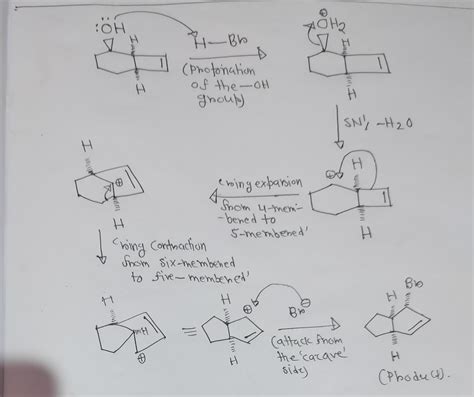 :ÖH
H
H—Br
(Protonation
of the —OH
group)
H
⊕
OH2
H
H
SN1, -H2O
H
⊕
H
'ring expansion
from 4-mem-
-bered to
5-membered'
H
⊕
H
'ring contraction
from six-membered
to five-membered'
H
H
⊕
≡
H
⊕
H
Br⊖
(attack from
the 'concave'
side)
H
Br
H
(Product).